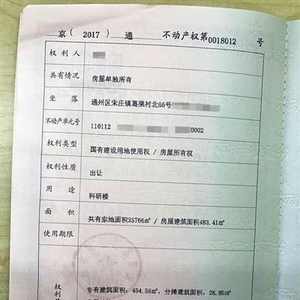 京（2017）通 不动产权第0018012号
权利人
共有情况 房屋单独所有
坐落 通州区宋庄镇葛渠村北56号
不动产单元号 110112 0002
权利类型 国有建设用地使用权 / 房屋所有权
权利性质 出让
用途 科研楼
面积 共有宗地面积35766㎡ / 房屋建筑面积483.41㎡
使用期限
专有建筑面积：454.56㎡，分摊建筑面积：28.95㎡
权利